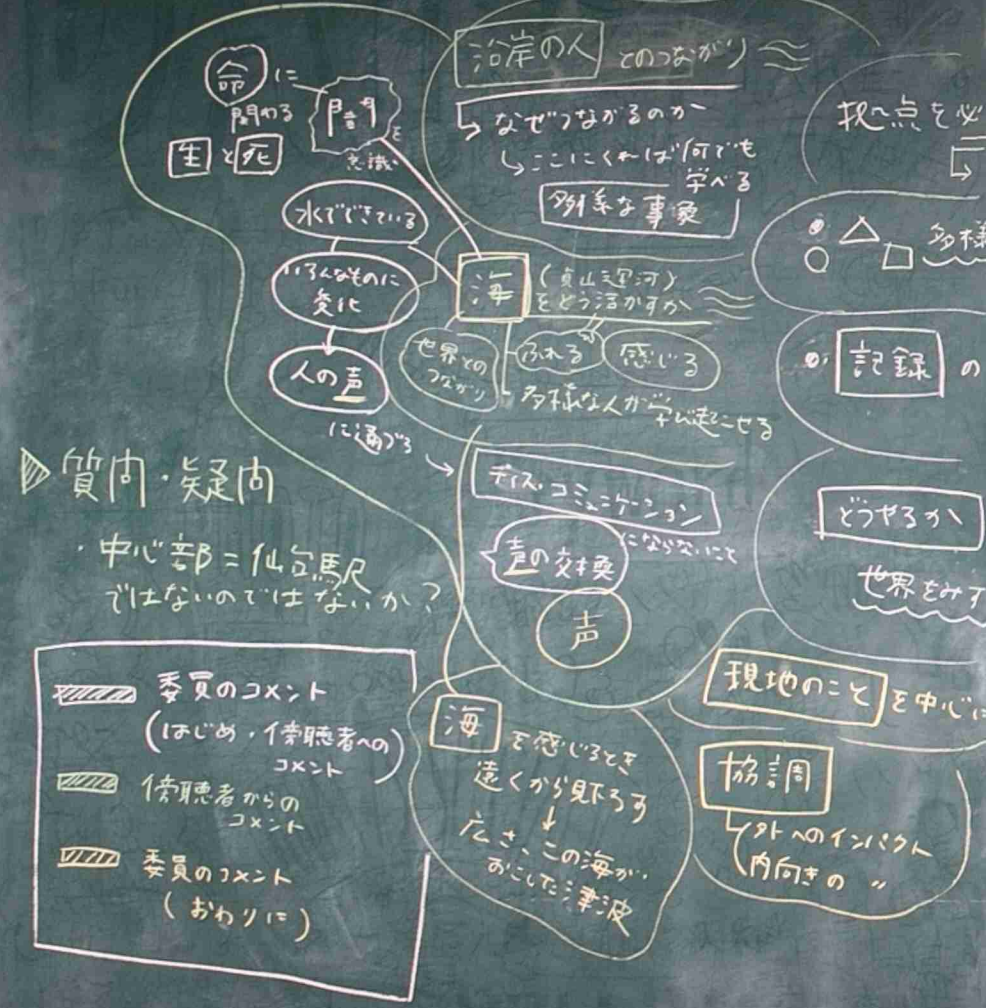 命に
関わる
生と死
闇を
意識
水でできている
いろんなものに
変化
人の声
に通づる
沿岸の人とのつながり
なぜつながるのか
ここにくれば何でも
学べる
多様な事象
海
(貞山運河)
をどう活かすか
世界との
つながり
ふれる
感じる
多様な人が学び起こせる
ディスコミュニケーション
にならないこと
声の交換
声
海を感じるとき
遠くから見下ろす
広さ、この海が、
おこした津波
拠点を必
多様
記録の
どうやるか
世界をみす
現地のことを中心に
協調
外へのインパクト
内向きの 〃
質問・疑問
・中心部=仙台駅
ではないのではないか?
委員のコメント
(はじめ・傍聴者への
コメント)
傍聴者からの
コメント
委員のコメント
(おわりに)